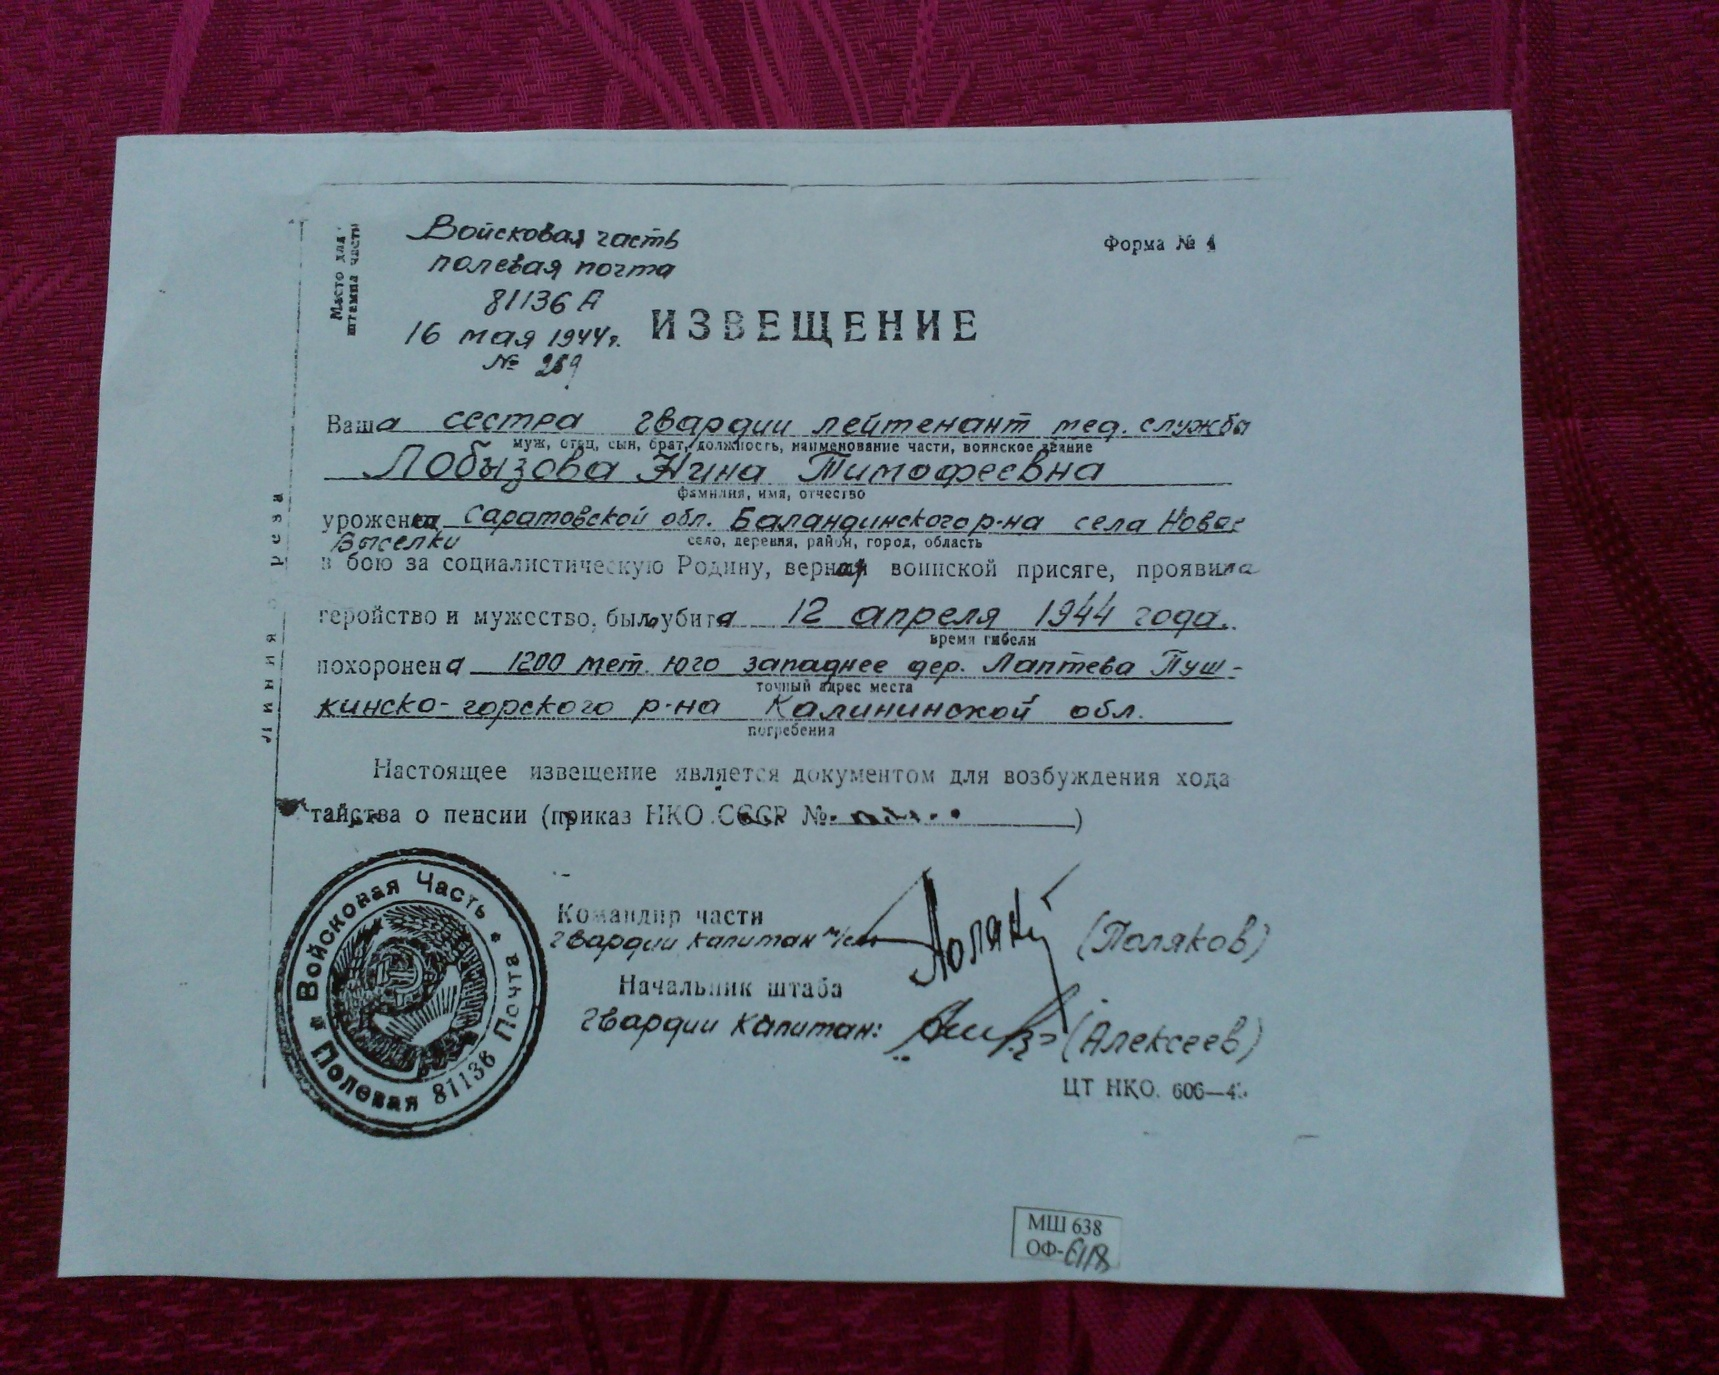 Место для
штампа части
Войсковая часть
полевая почта
81136 А
16 мая 1944 г.
№ 259
Форма № 4
ИЗВЕЩЕНИЕ
Ваша сестра гвардии лейтенант мед. служба
муж, отец, сын, брат, должность, наименование части, воинское звание
Лобызова Нина Тимофеевна
фамилия, имя, отчество
уроженка Саратовской обл. Баландинского р-на села Новые
Выселки
село, деревня, район, город, область
в бою за социалистическую Родину, верная воинской присяге, проявила
геройство и мужество, была убита 12 апреля 1944 года.
время гибели
похоронена 1200 мет. юго западнее дер. Лаптева Пуш-
точный адрес места
кинско-горского р-на Калининской обл.
погребения
Настоящее извещение является документом для возбуждения хода
тайства о пенсии (приказ НКО СССР № )
Линия отреза
Командир части
гвардии капитан м/сл (Поляков)
Начальник штаба
гвардии капитан: (Алексеев)
ЦТ НКО. 606—4
Войсковая Часть
Полевая Почта
81136
МШ 638
ОФ-6118